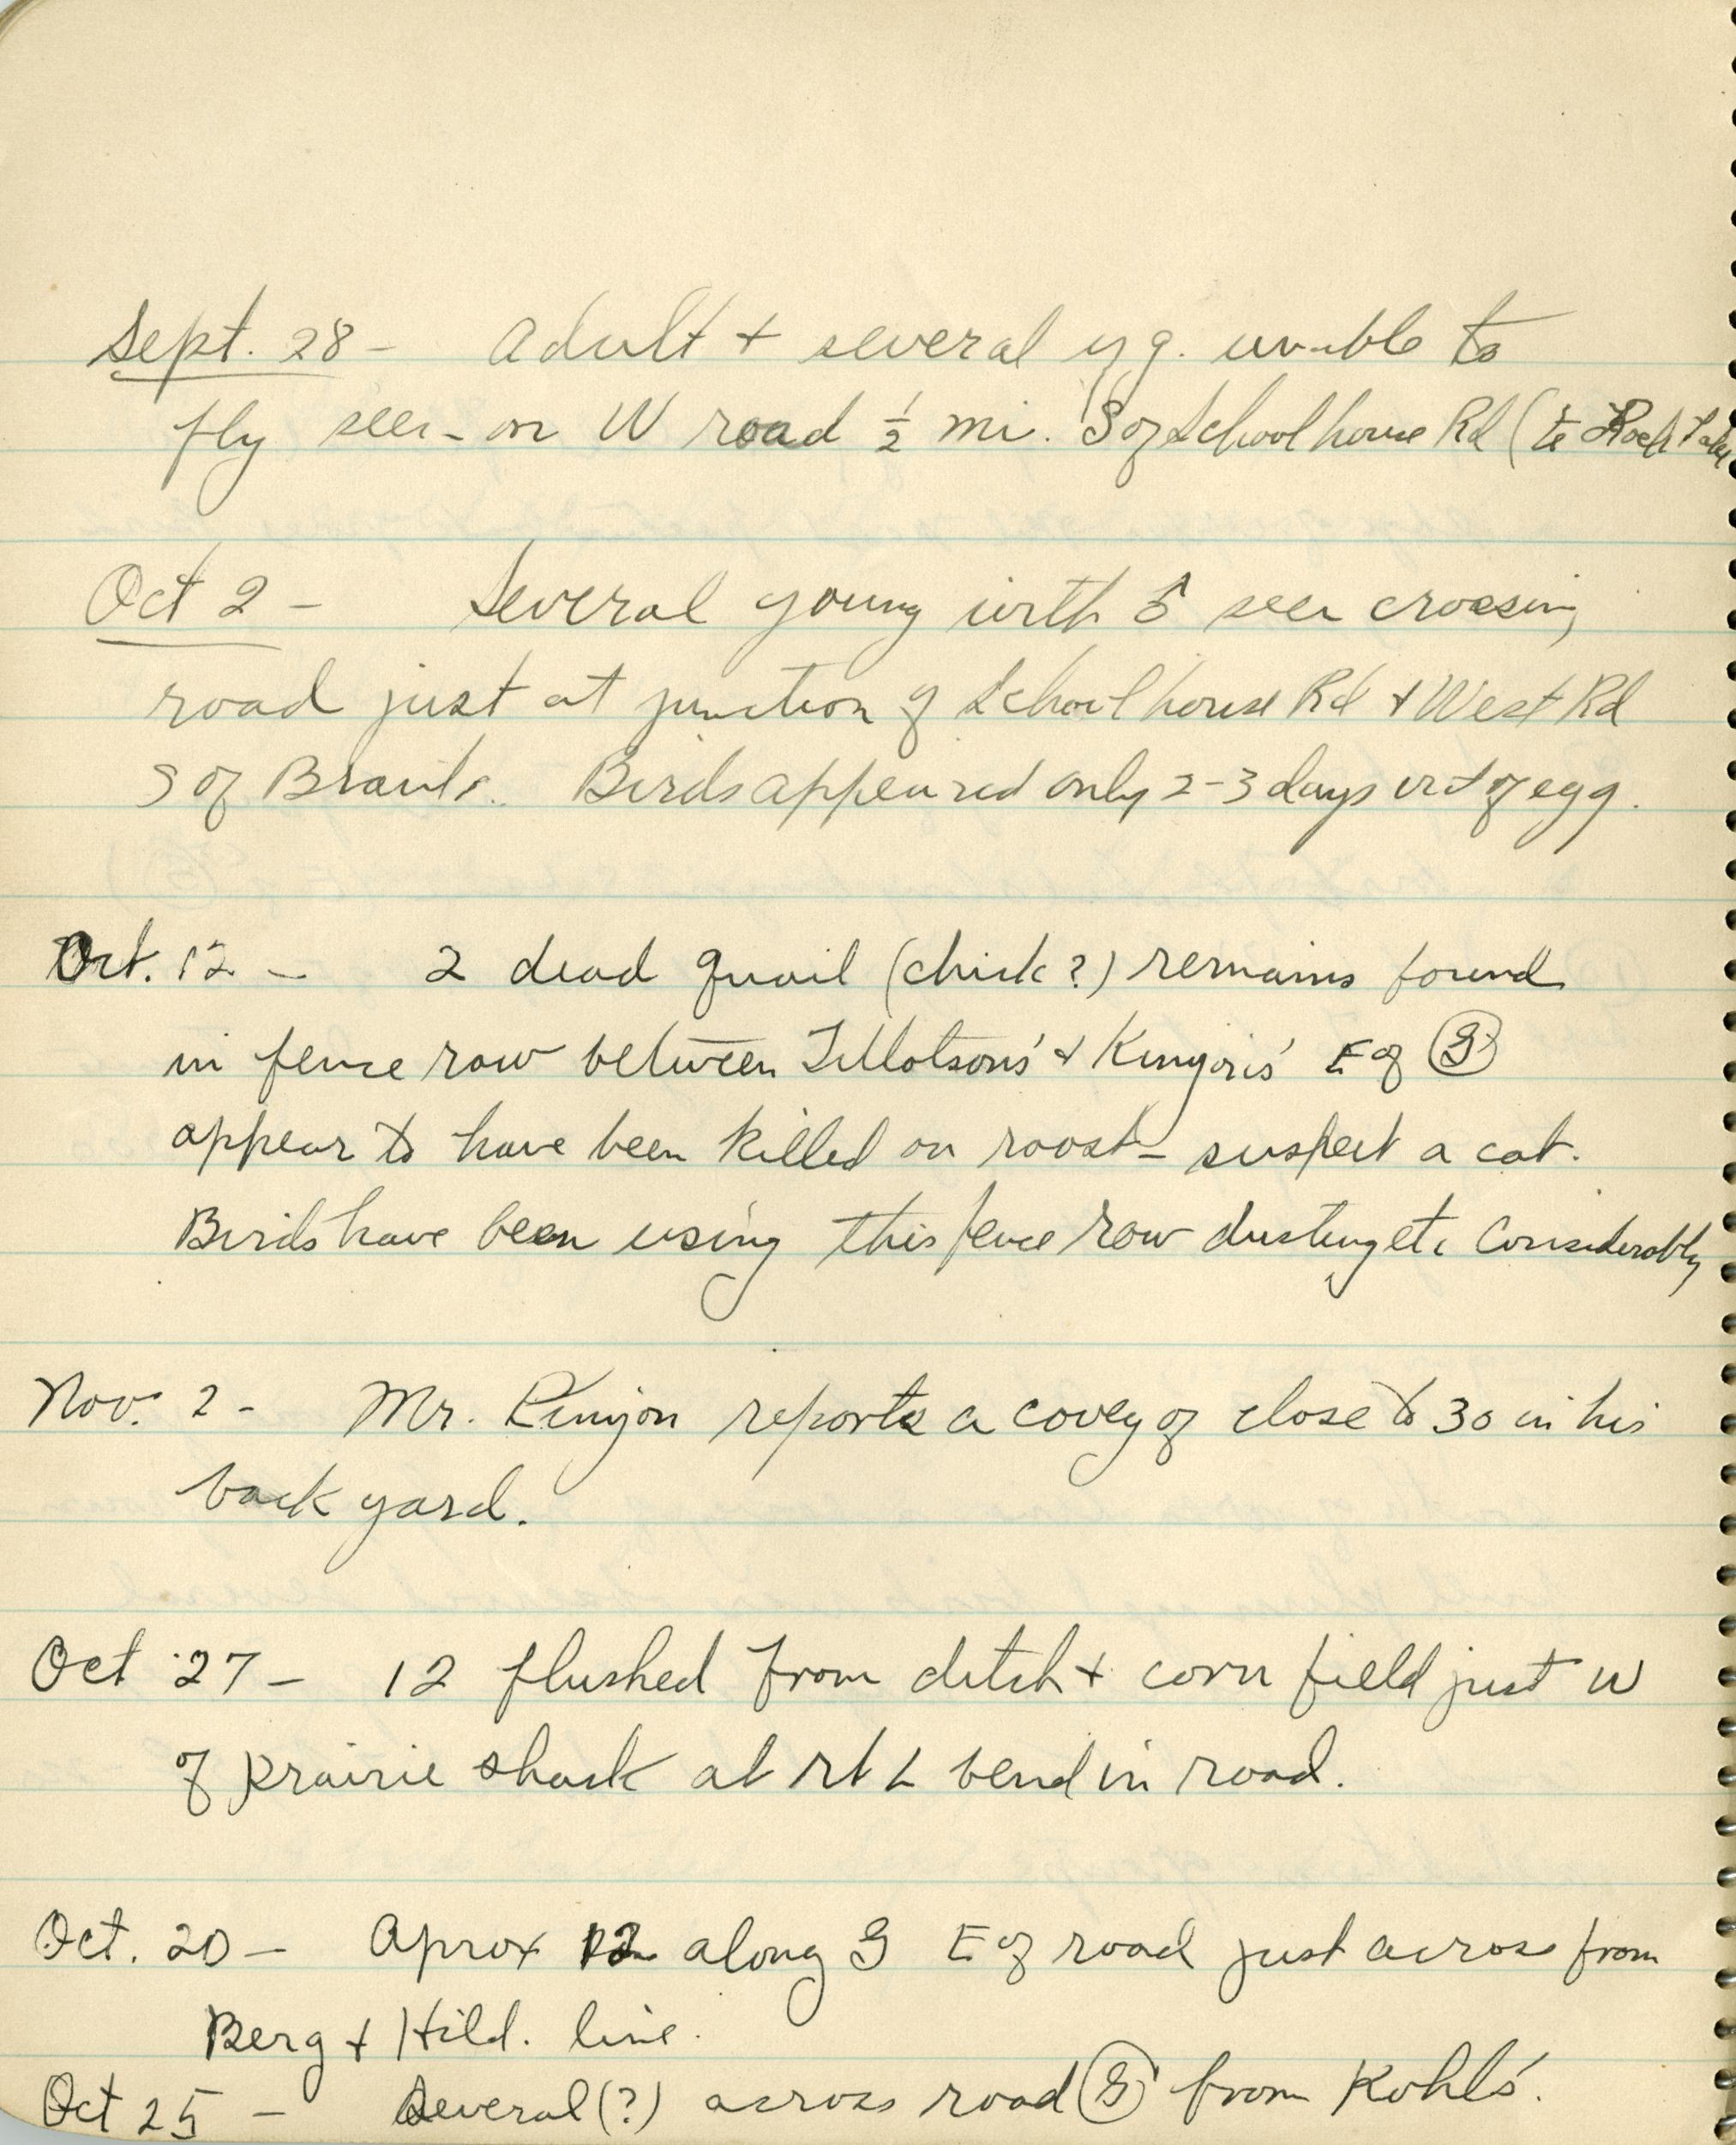 Sept. 28 - Adult + several yg. unable to
fly seen on W road ½ mi. S of Schoolhouse Rd (to Rock Lake
Oct 2 - Several young with ♂ seen crossing
road just at junction of Schoolhouse Rd + West Rd
S of Birds appeared only 2-3 days out of egg.
Oct. 12 - 2 dead quail (chick?) remains found
in fence row between Tillotsons' + Kinyon's E of G
appear to have been killed on roost - suspect a cat.
Birds have been using this fence row dusting etc considerably
Nov. 2 - Mr. Kinyon reports a covey of close to 30 in his
back yard.
Oct 27 - 12 flushed from ditch + corn field just W
of prairie shack at rt ∠ bend in road.
Oct. 20 - Aprox 12 along G E of road just across from
Berg + Hild. line.
Oct 25 - Several (?) across road G from Kohls'.